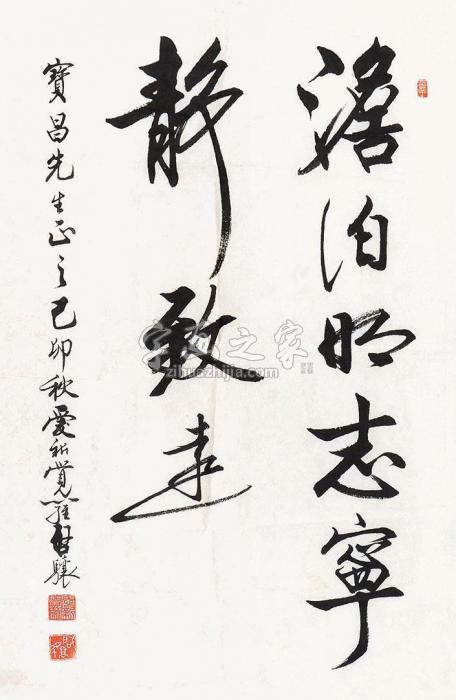 澹泊明志寧
靜致遠
寶昌先生正之己卯秋愛新覺羅啟驤
字画之家
zihuazhijia.com